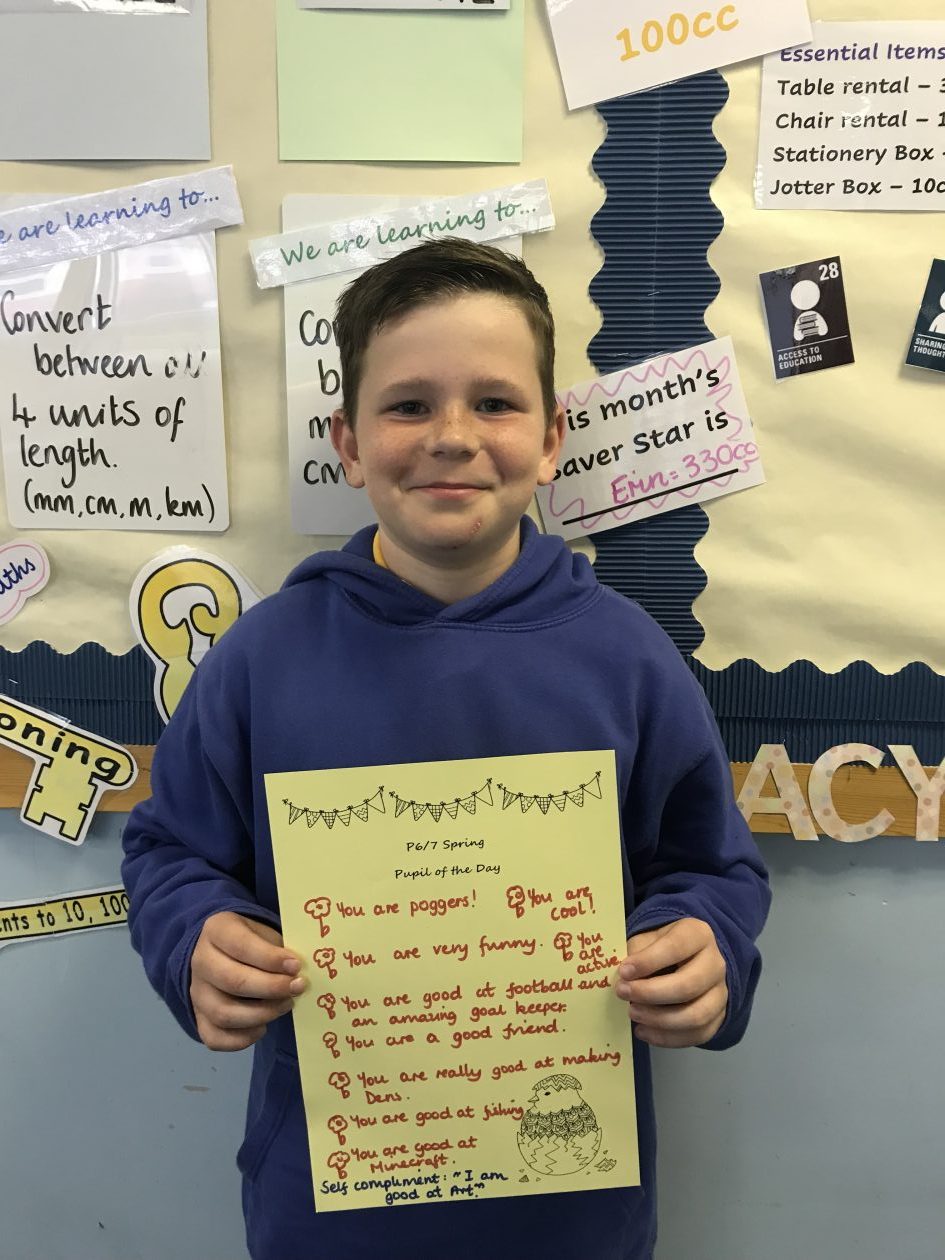 100cc
Essential Items
Table rental – 3
Chair rental – 1
Stationery Box -
Jotter Box – 10c
e are learning to...
We are learning to...
Convert
between all
4 units of
length.
(mm,cm,m,km)
Co
b
m
cm
28
ACCESS TO
EDUCATION
SHARING
THOUGHT
is month's
saver Star is
Erin = 330cc
aths
oning
nts to 10, 100
ACY
P6/7 Spring
Pupil of the Day
You are poggers!
You are
cool!
You are very funny.
You
are
active.
You are good at football and
an amazing goal keeper.
You are a good friend.
You are really good at making
Dens.
You are good at fishing
You are good at
Minecraft.
Self compliment: "I am
good at Art."